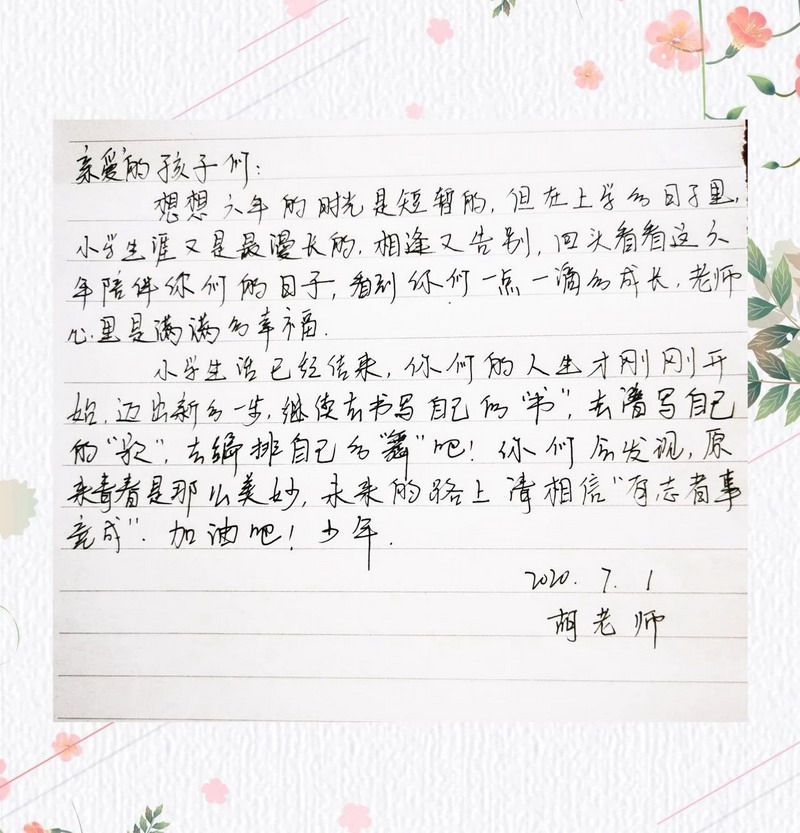 亲爱的孩子们：
想想六年的时光是短暂的，但在上学的日子里，
小学生涯又是最漫长的，相逢又告别，回头看看这六
年陪伴你们的日子，看到你们一点一滴的成长，老师
心里是满满的幸福．
小学生活已经结束，你们的人生才刚刚开
始，迈出新的一步，继续去书写自己的“书”，去谱写自己
的“歌”，去编排自己的“舞”吧！你们会发现，原
来青春是那么美妙，未来的路上请相信“有志者事
竟成”．加油吧！少年．
2020. 7. 1
老师